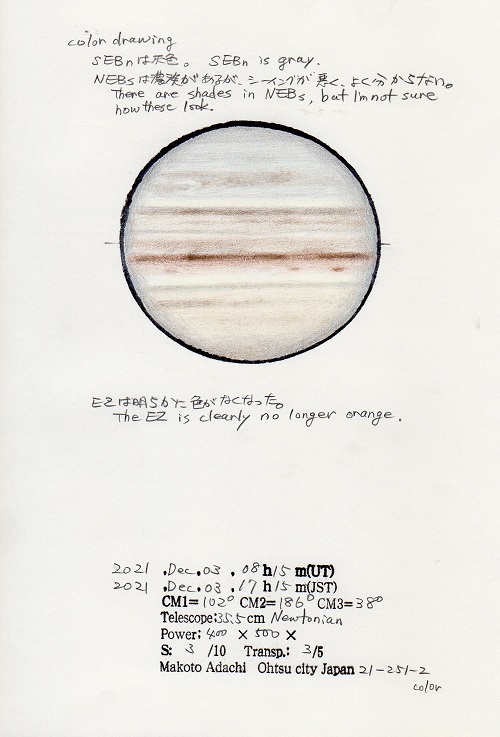 color drawing
SEBnは灰色。 SEBn is gray.
NEBsは濃淡があるが、シーイングが悪く、よく分からない。
There are shades in NEBs, but I'm not sure
how these look.
EZは明らかに色がなくなった。
The EZ is clearly no longer orange.
2021 .Dec.03 . 08 h 15 m(UT)
2021 .Dec.03 . 17 h 15 m(JST)
CM1=102° CM2=186° CM3=38°
Telescope:35.5cm Newtonian
Power: 400 × 500 ×
S: 3 /10 Transp.: 3/5
Makoto Adachi Ohtsu city Japan 21-251-2
color